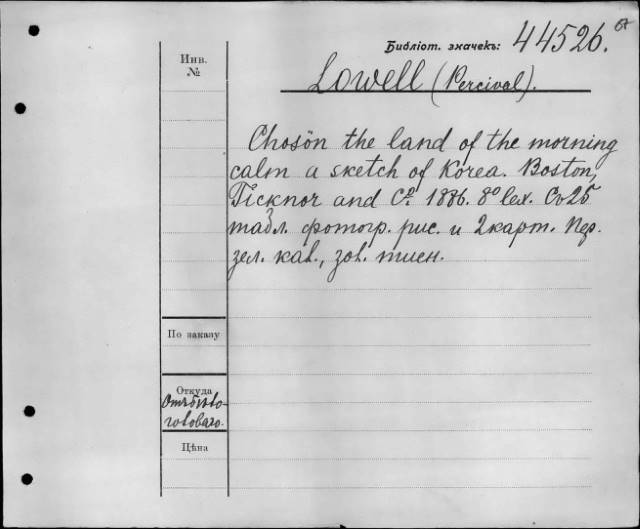 Библіот. значекъ: 44526.
Инв. №
Lowell (Percival).
Chosön the land of the morning
calm a sketch of Korea. Boston,
Ticknor and Cº. 1886. 8º lex. Съ 25
табл. фотогр. рис. и 2 карт. Пер.
зел. кал., зол. тисн.
По заказу
Откуда
Цѣна